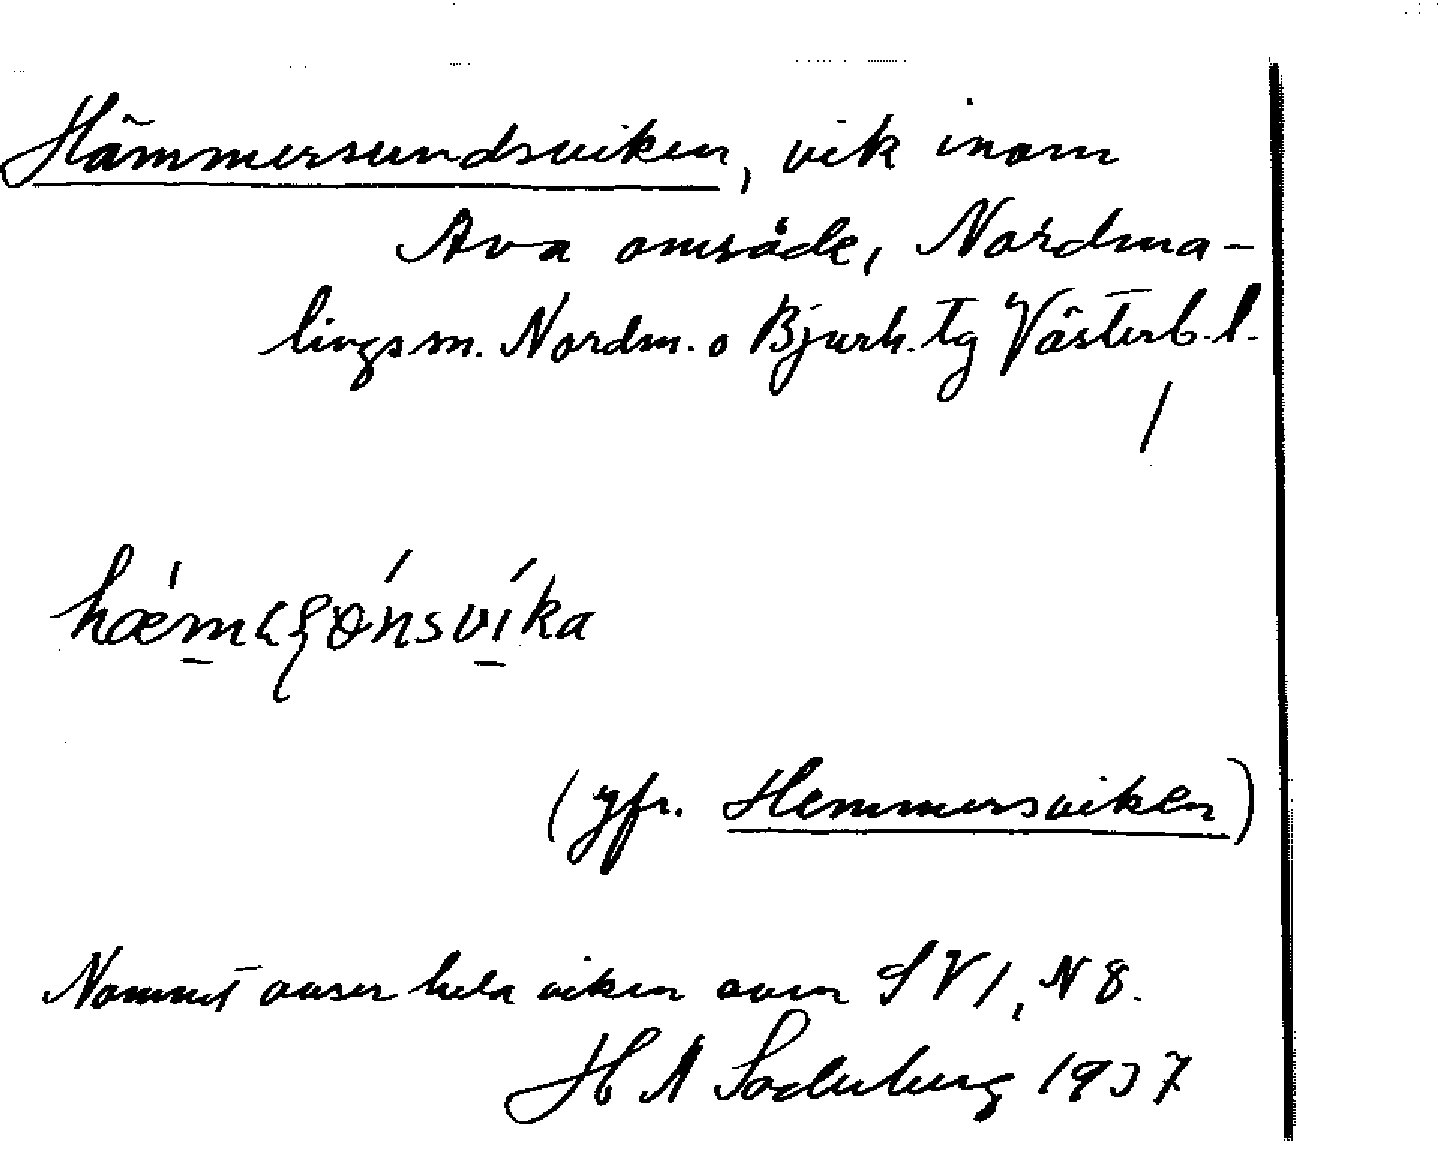 Hämmersundsviken, vik inom
Ava område, Nordma-
lings sn. Nordm. o Bjurh. tg Västerb. l.
(jfr. Hemmersviken)
Namnet avser hela viken ovan SV 1, N 8.
H A Söderberg 1937